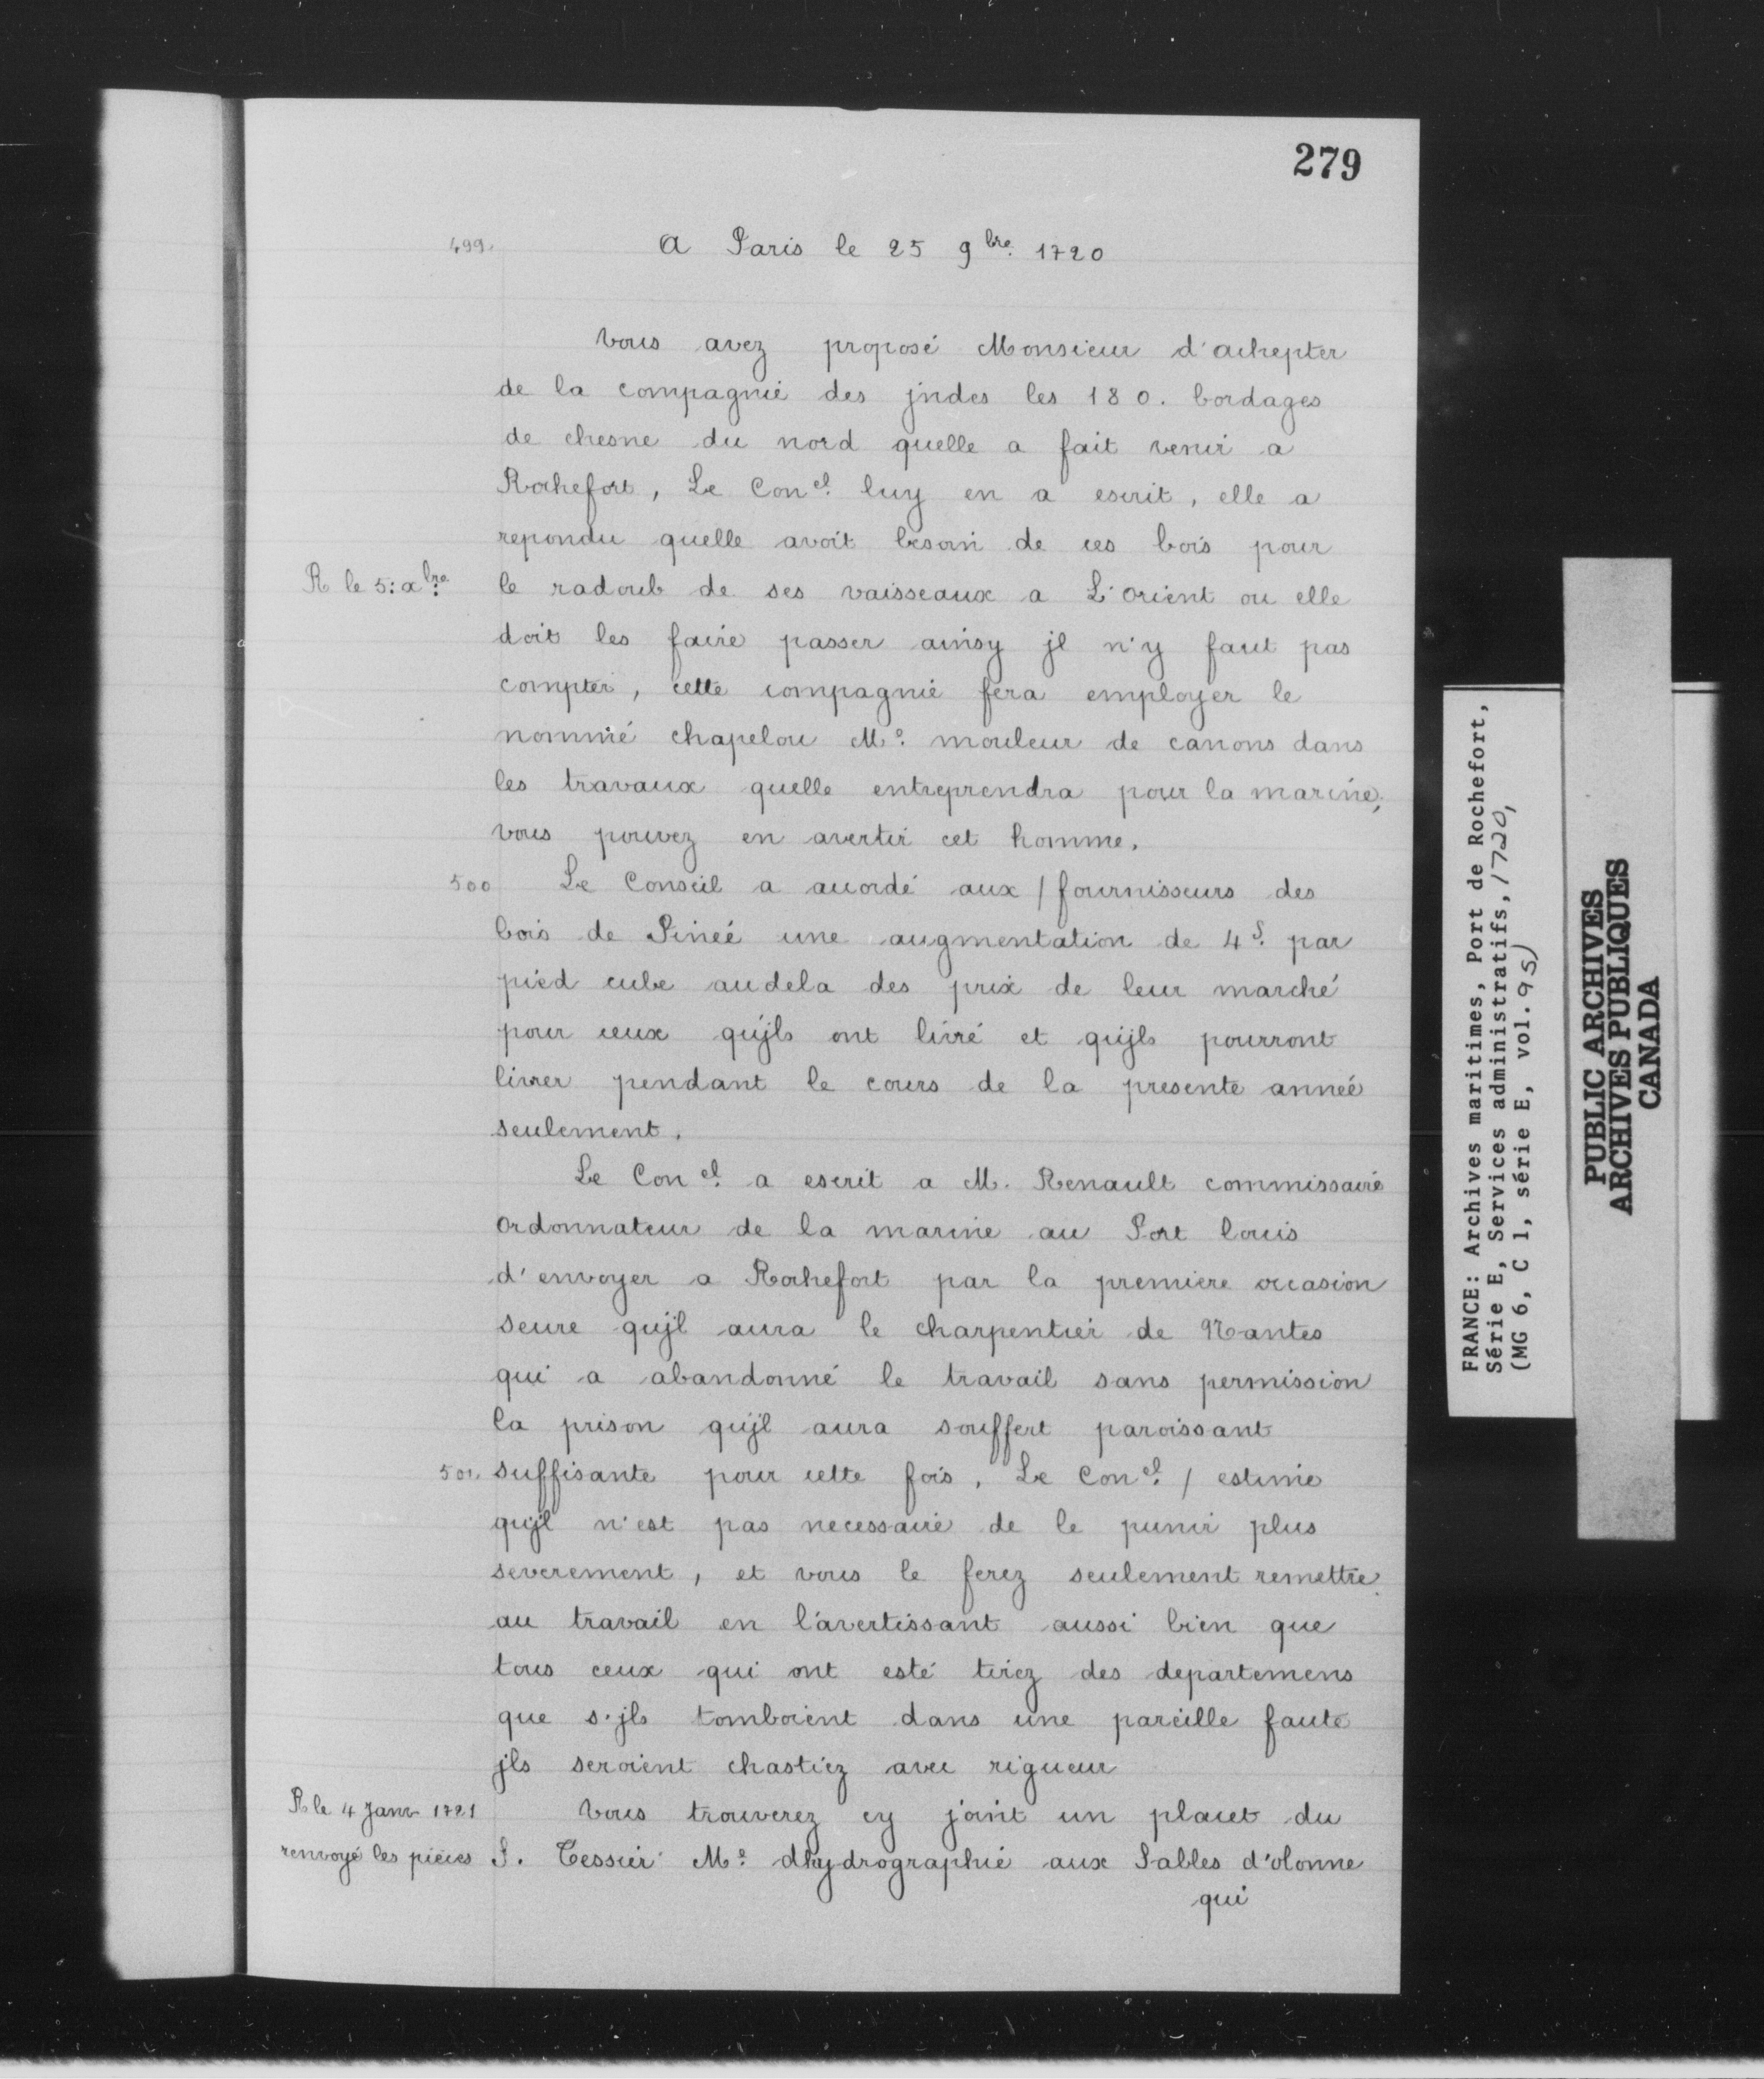 279
499. A Paris le 25 9bre. 1720
Vous avez proposé Monsieur d'achepter
de la compagnie des jndes les 180. bordages
de chesne du nord quelle a fait venir a
Rochefort, Le Conel. luy en a escrit, elle a
repondu quelle avoit besoin de ces bois pour
R le 5: xbre. le radoub de ses vaisseaux a L'orient ou elle
doit les faire passer ainsy jl n'y faut pas
compter, cette compagnie fera employer le
nommé chapelou Me. mouleur de canons dans
les travaux quelle entreprendra pour la marine,
vous pouvez en avertir cet homme.
500 Le Conseil a accordé aux / fournisseurs des
bois de Pineé une augmentation de 4s. par
pied cube audela des prix de leur marché
pour ceux qu'jls ont livré et qu'jls pourront
livrer pendant le cours de la presente année
seulement.
Le Conel. a escrit a M. Renault commissaire
ordonnateur de la marine au Port louis
d'envoyer a Rochefort par la premiere occasion
seure qu'jl aura le charpentier de Nantes
qui a abandonné le travail sans permission
la prison qu'jl aura souffert paroissant
501. suffisante pour cette fois, Le Conel. / estime
qu'jl n'est pas necessaire de le punir plus
severement, et vous le ferez seulement remettre
au travail en l'avertissant aussi bien que
tous ceux qui ont esté tirez des departemens
que s'jls tomboient dans une pareille faute
jls seroient chastiez avec rigueur
R le 4 Janv 1721 Vous trouverez cy joint un placet du
renvoyé les pieces S. Tessier Me. dhydrographie aux Sables d'olonne
qui
FRANCE: Archives maritimes, Port de Rochefort,
Série E, Services administratifs, 1720,
(MG 6, C 1, série E, vol. 95)
PUBLIC ARCHIVES
ARCHIVES PUBLIQUES
CANADA